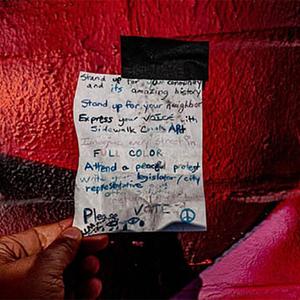 Stand up for your community
and its amazing history
Stand up for your Neighbor
Express your VOICE with
Sidewalk Chalk ART
Imagine every street in
FULL COLOR
Attend a peaceful protest
Write your legislator/city
representative
Please
VOTE